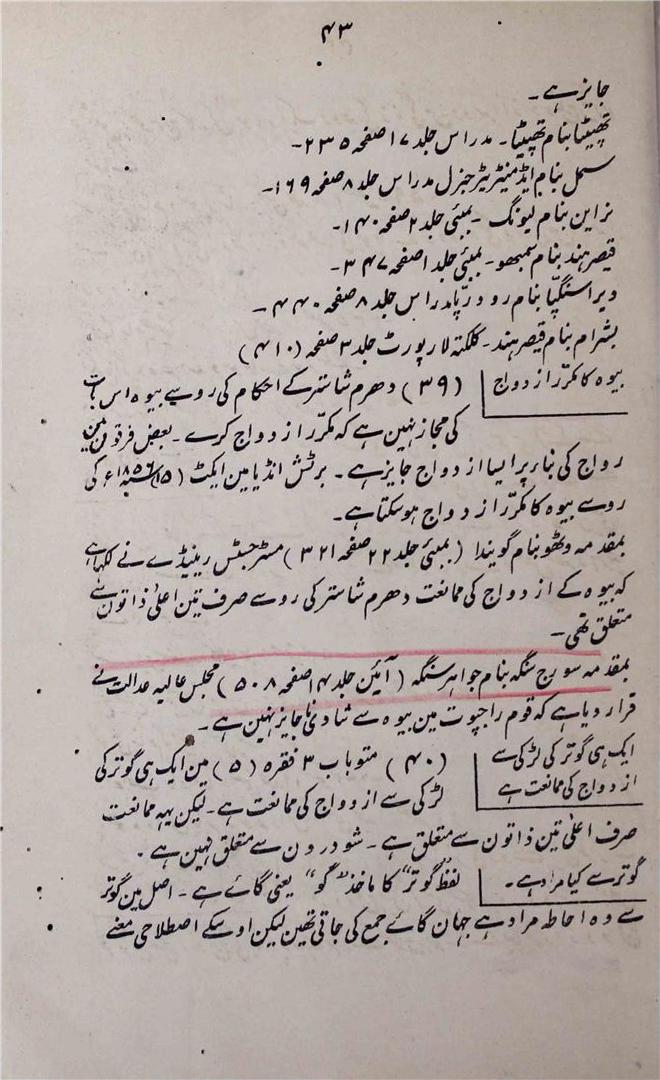 ۴۳
جایز ہے۔
تھپیٹا بنام تھپیٹا۔ مدراس جلد ۱۷ صفحہ ۲۳۵۔
سمل بنام ایڈمنیٹریٹر جنرل مدراس جلد ۸ صفحہ ۱۶۹۔
نراین بنام لیونگ ۔ بمبئی جلد ۲ صفحہ ۱۴۰۔
قیصر ہند بنام سمبھو۔ بمبئی جلد ۱ صفحہ ۳۴۷۔
ویراسنگپّا بنام رودرپّا مدراس جلد ۸ صفحہ ۴۴۰۔
بشرام بنام قیصر ہند۔ کلکتہ لا رپورٹ جلد ۳ صفحہ (۴۱۰)
بیوہ کا مکرّر ازدواج
(۳۹) دھرم شاستر کے احکام کی رو سے بیوہ اس بات
کی مجاز نہین ہے کہ مکرّر ازدواج کرے۔ بعض فرقون مین
رواج کی بنا پر ایسا ازدواج جایز ہے۔ برٹش انڈیا مین ایکٹ (۱۵) ۱۸۵۶ء کی
رو سے بیوہ کا مکرّر ازدواج ہوسکتا ہے۔
بمقدمہ وٹھو بنام گویندا (بمبئی جلد ۲۲ صفحہ ۳۲۱) مسٹر جسٹس رینیڈے نے لکھا ہے
کہ بیوہ کے ازدواج کی ممانعت دھرم شاستر کی رو سے صرف تین اعلیٰ ذاتون سے
متعلق تھی۔
بمقدمہ سورج سنگہ بنام جواہر سنگہ (آئین جلد ۱۴ صفحہ ۵۰۸) مجلس عالیہ عدالت نے
قرار دیا ہے کہ قوم راجپوت مین بیوہ سے شادی ناجایز نہین ہے۔
ایک ہی گوتر کی لڑکی سے
ازدواج کی ممانعت ہے
(۴۰) منو باب ۳ فقرہ (۵) مین ایک ہی گوتر کی
لڑکی سے ازدواج کی ممانعت ہے۔ لیکن یہہ ممانعت
صرف اعلیٰ تین ذاتون سے متعلق ہے۔ شودرون سے متعلق نہین ہے۔
گوتر سے کیا مراد ہے۔
لفظ "گوتر" کا ماخذ "گو" یعنی گائے ہے۔ اصل مین گوتر
سے وہ احاطہ مراد ہے جہان گائے جمع کی جاتی تھین لیکن اوسکے اصطلاحی معنے